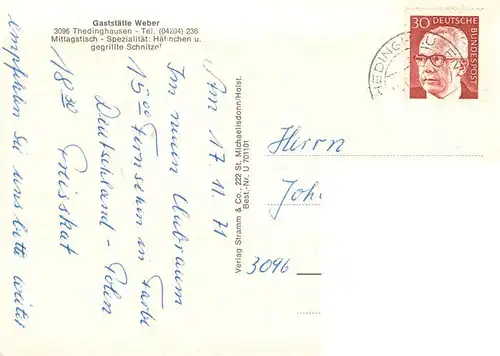 Gaststätte Weber
3096 Thedinghausen - Tel. (04204) 236
Mittagstisch - Spezialität: Hähnchen u.
gegrillte Schnitzel
Am 17 11. 71
Im neuen Clubraum
15 00 Fernsehen in Farbe
Deutschland - Polen
18 30 Preisskat
empfehlen Sie uns bitte weiter
Verlag Stramm & Co., 222 St. Michaelisdonn/Holst.
Best.-Nr. U 701101
30 DEUTSCHE
BUNDESPOST
THEDINGHAUSEN
Herrn
Joh.
3096